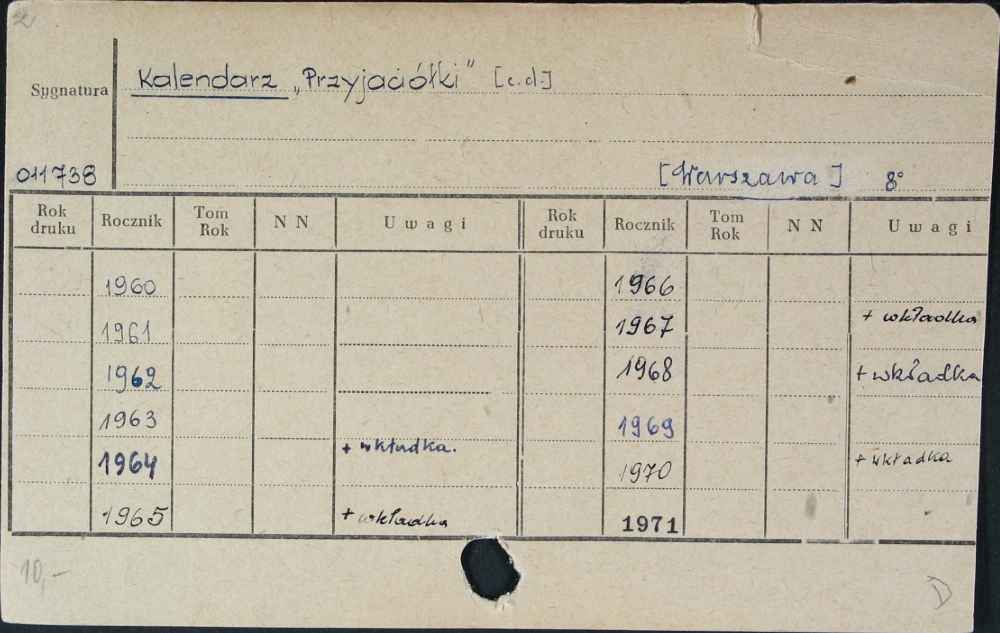 Kalendarz „Przyjaciółki” [c.d.]
Sygnatura
011738
[Warszawa] 8°
Rok druku Rocznik Tom Rok N N Uwagi Rok druku Rocznik Tom Rok N N Uwagi
1960 1966
1961 1967 + wkładka
1962 1968 + wkładka
1963 1969
1964 + wkładka. 1970 + wkładka
1965 + wkładka 1971
10,-
D